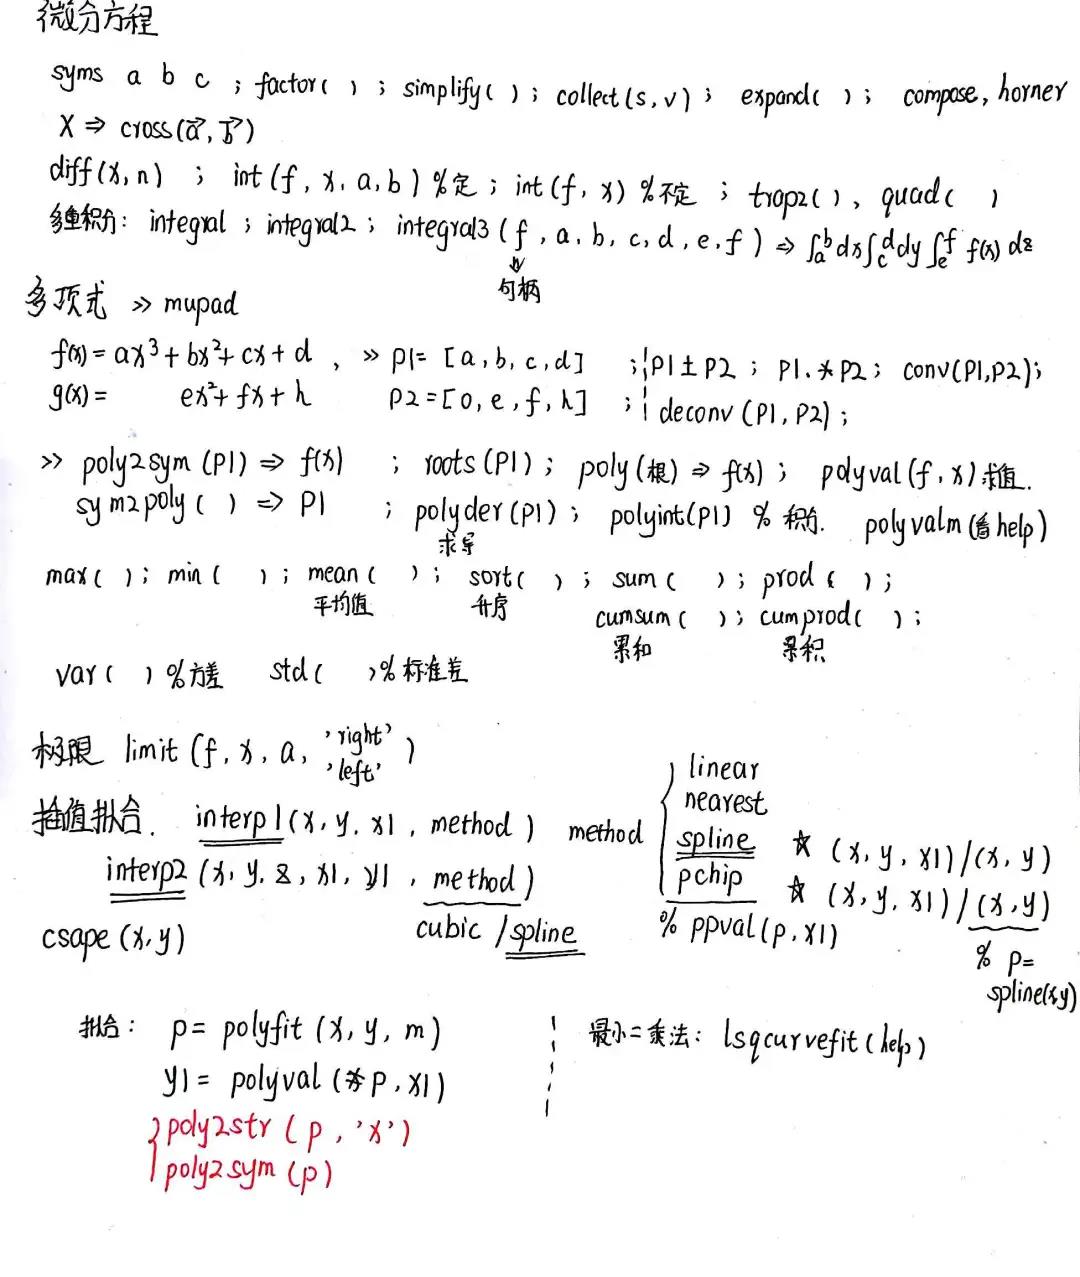 微分方程
syms a b c ; factor( ) ; simplify( ) ; collect(s,v) ; expand( ) ; compose, horner
X ⇒ cross(a⃗, b⃗)
diff(x,n) ; int(f, x, a, b) %定 ; int(f, x) %不定 ; trapz( ), quad( )
多重积分: integral ; integral2 ; integral3 (f, a, b, c, d, e, f) ⇒ ∫ₐᵇdx∫_c^d dy∫_e^f f(x) dz
句柄
多项式 >> mupad
f(x) = ax³+bx²+cx+d , >> P1= [a,b,c,d] ; P1±P2 ; P1.*P2 ; conv(P1,P2);
g(x) = ex²+fx+h P2=[0,e,f,h] ; deconv (P1, P2) ;
>> poly2sym (P1) ⇒ f(x) ; roots(P1) ; poly(根) ⇒ f(x) ; polyval(f, x) 求值.
sym2poly ( ) ⇒ P1 ; polyder(P1) ; polyint(P1) % 积分. polyvalm (看help)
求导
max( ); min( ); mean( ); sort( ); sum( ); prod( );
平均值 升序 cumsum( ); cumprod( );
累和 累积
var( ) %方差 std( )% 标准差
极限 limit (f, x, a, 'right' 'left' )
插值拟合. interp1(x, y, x1, method) method linear
nearest
spline ☆ (x, y, x1)/(x, y)
interp2 (x, y, z, x1, y1, method) pchip ☆ (x, y, x1)/(x, y)
csape (x, y) cubic / spline % ppval(p, x1)
% p=
spline(x,y)
拟合: p= polyfit (x, y, m) 最小二乘法: lsqcurvefit (help)
y1= polyval (p, x1)
poly2str (p, 'x')
poly2sym (p)